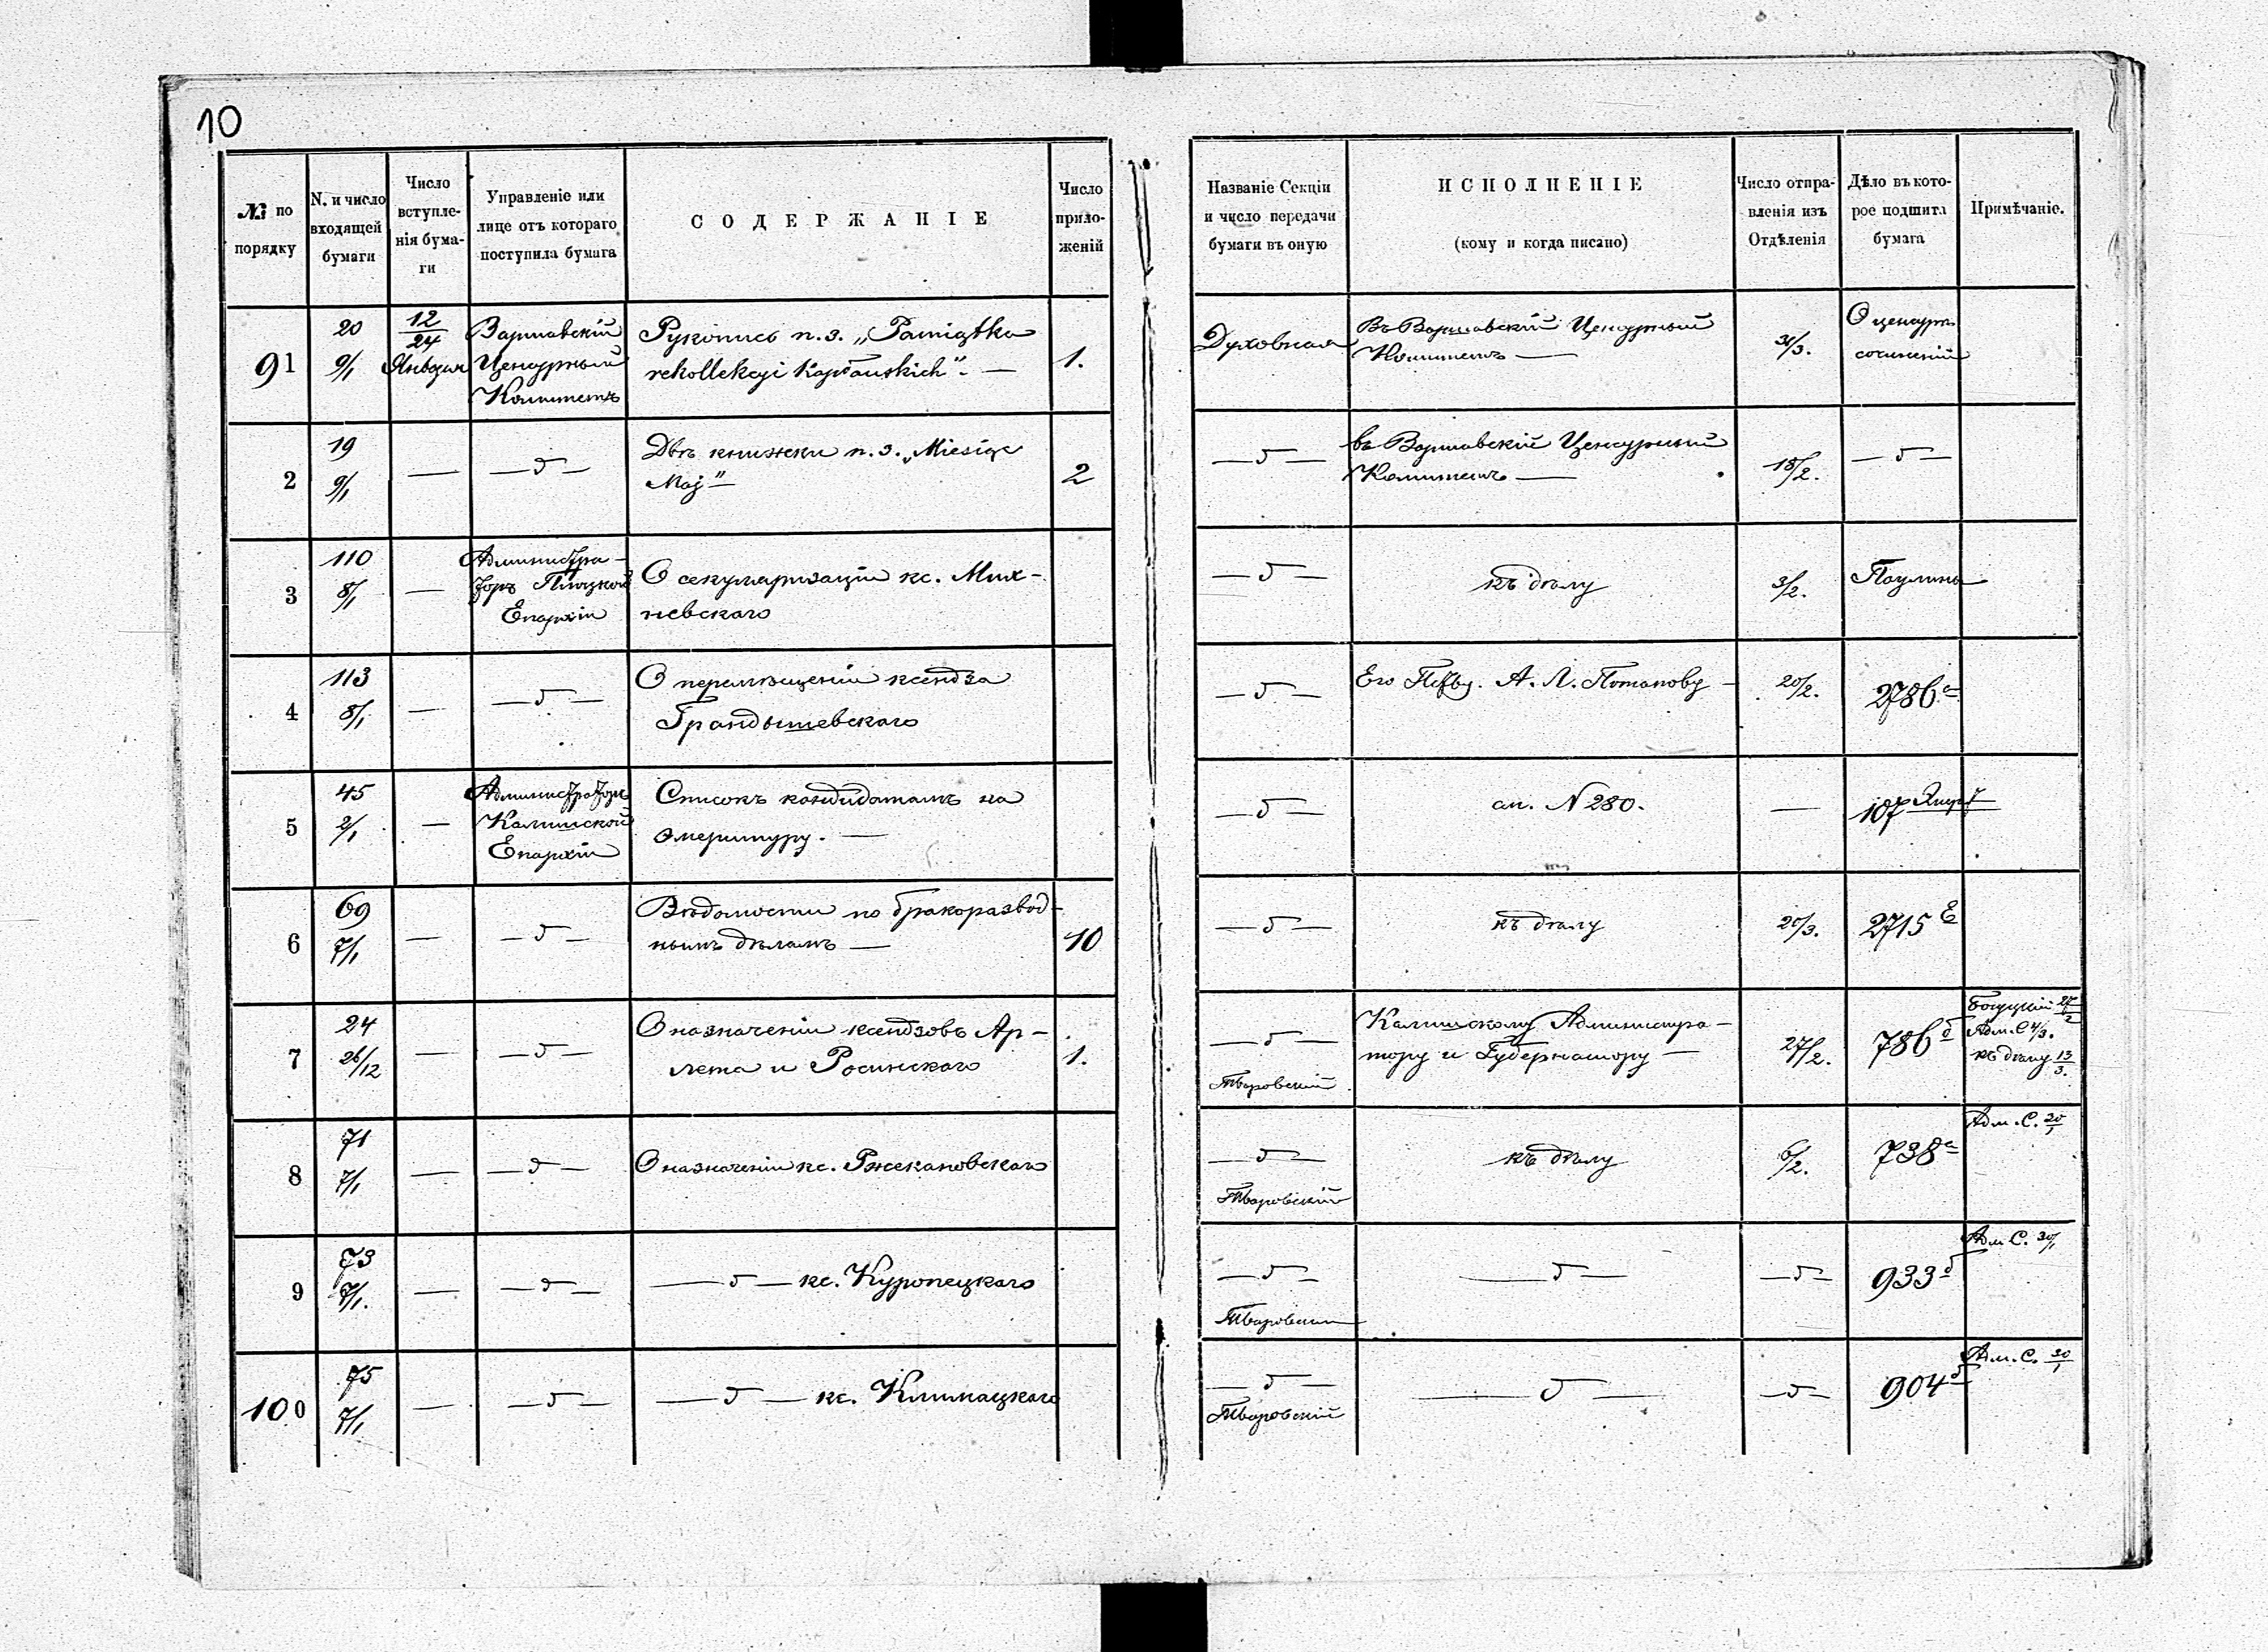 10
№ по порядку
N. и число входящей бумаги
Число вступле-нія бума-ги
Управленіе или лице отъ котораго поступила бумага
СОДЕРЖАНІЕ
Число прило-женій
Названіе Секціи и число передачи бумаги въ оную
ИСПОЛНЕНІЕ
(кому и когда писано)
Число отпра-вленія изъ Отдѣленія
Дѣло въ кото-рое подшита бумага
Примѣчаніе.
91
20
9/1
12/24
Января
Варшавскій
Цензурный
Комитетъ
Рукопись п. з. „Pamiątka
rekollekcyi kapłańskich“. —
1.
Духовная
Въ Варшавскій Цензурный
Комитетъ —
31/3.
О ценсурѣ
сочиненій
2
19
9/1
—
— δ —
Двѣ книжки п. з. „Miesiąc
Maj“
2
— δ —
въ Варшавскій Цензурный
Комитетъ —
18/2.
— δ —
3
110
8/1
—
Администра-
торъ Плоцкой
Епархіи
О секуляризаціи кс. Мих-
невскаго
— δ —
къ дѣлу
3/2.
Паулины
4
113
8/1
—
— δ —
О перемѣщеніи ксендза
Грандышевскаго
— δ —
Его А. Л. Потапову —
20/2.
2786 а
5
45
2/1
—
Администраторъ
Калишской
Епархіи
Списокъ кандидатамъ на
эмеритуру. —
— δ —
см. N 280.
—
107
6
69
7/1
—
— δ —
Вѣдомости по бракоразвод-
нымъ дѣламъ —
10
— δ —
къ дѣлу
20/3.
2715 Е
7
24
26/12
—
— δ —
О назначеніи ксендзовъ Ар-
лета и Росинскаго
1.
— δ —
Тваровскій
Калишскому Администра-
тору и Губернатору —
27/2.
786 б
27/2
Адм. С 4/3.
къ дѣлу 13/3.
8
71
7/1
—
— δ —
О назначеніи кс. Ржекановскаго
— δ —
Тваровскій
къ дѣлу
6/2.
738 а
Адм. С. 20/1
9
73
7/1.
—
— δ —
— δ — кс. Куропецкаго
— δ —
Тваровскій
— δ —
— δ —
933 б
Адм С. 30/1
100
75
7/1
—
— δ —
— δ — кс. Климацкаго
— δ —
Тваровскій
— δ —
— δ —
904 б
Адм. С. 30/1